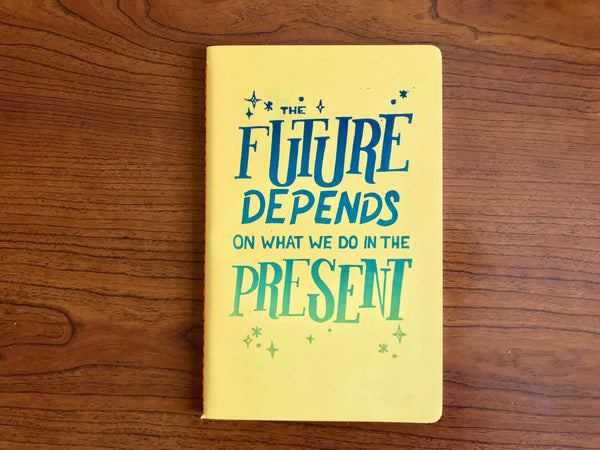 THE
FUTURE
DEPENDS
ON WHAT WE DO IN THE
PRESENT